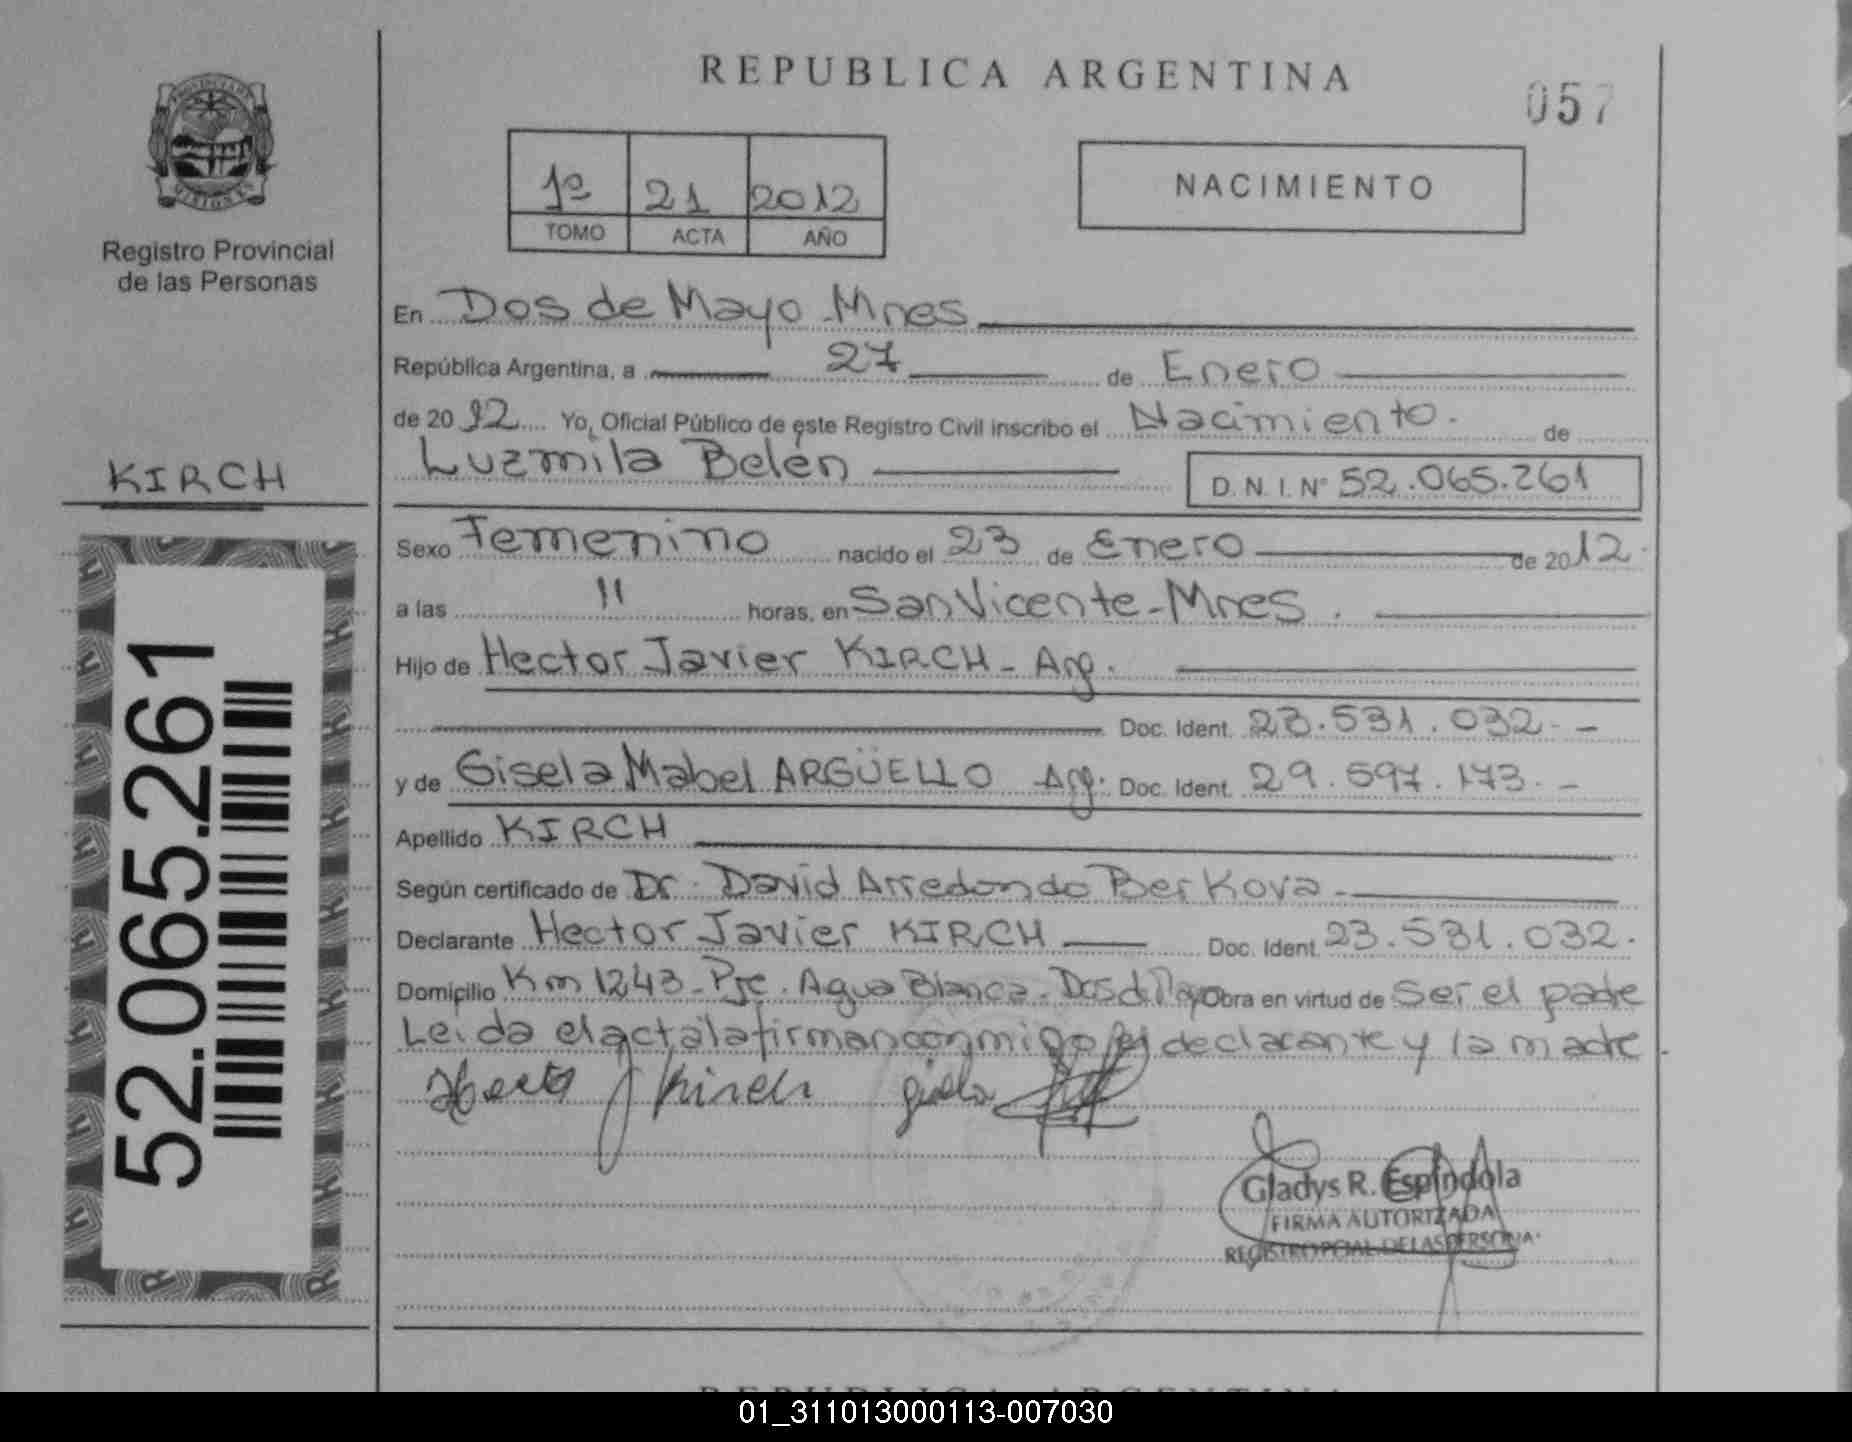 REPUBLICA ARGENTINA
057
PROVINCIA DE
MISIONES
Registro Provincial
de las Personas
1º 21 2012
TOMO ACTA AÑO
NACIMIENTO
En Dos de Mayo - Mnes
República Argentina, a 27 de Enero
de 2012 Yo, Oficial Público de este Registro Civil inscribo el Nacimiento. de
Luzmila Belén D. N. I. Nº 52.065.261
KIRCH
Sexo Femenino nacido el 23 de Enero de 2012.
a las 11 horas, en San Vicente - Mnes.
Hijo de Hector Javier KIRCH - Arg.
Doc. Ident. 23.531.032.-
y de Gisela Mabel ARGÜELLO Arg. Doc. Ident. 29.597.173.-
Apellido KIRCH
Según certificado de Dr. David Arredondo Berkova.
Declarante Hector Javier KIRCH Doc. Ident. 23.531.032.
Domicilio Km 1243 - Pje. Agua Blanca - Dos de Mayo Obra en virtud de ser el padre
Leida el acta la firman conmigo el declarante y la madre.
Kirch Gisela
Gladys R. Espíndola
FIRMA AUTORIZADA
REGISTRO PCIAL. DE LAS PERSONA
52.065.261
REPUBLICA ARGENTINA
01_311013000113-007030